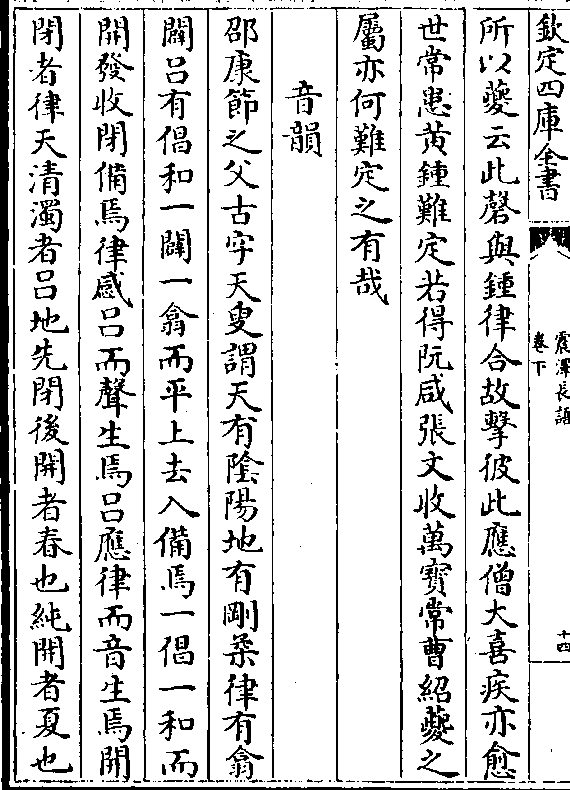 欽定四庫全書
震澤長語
卷下
十四
所以夔云此磬與鍾律合故擊彼此應僧大喜疾亦愈
世常患黃鍾難定若得阮咸張文收萬寶常曹紹夔之
屬亦何難定之有哉
音韻
邵康節之父古字天叟謂天有陰陽地有剛柔律有翕
闢呂有倡和一闢一翕而平上去入備焉一倡一和而
開發收閉備焉律感呂而聲生焉呂應律而音生焉開
閉者律天清濁者呂地先閉後開者春也純開者夏也